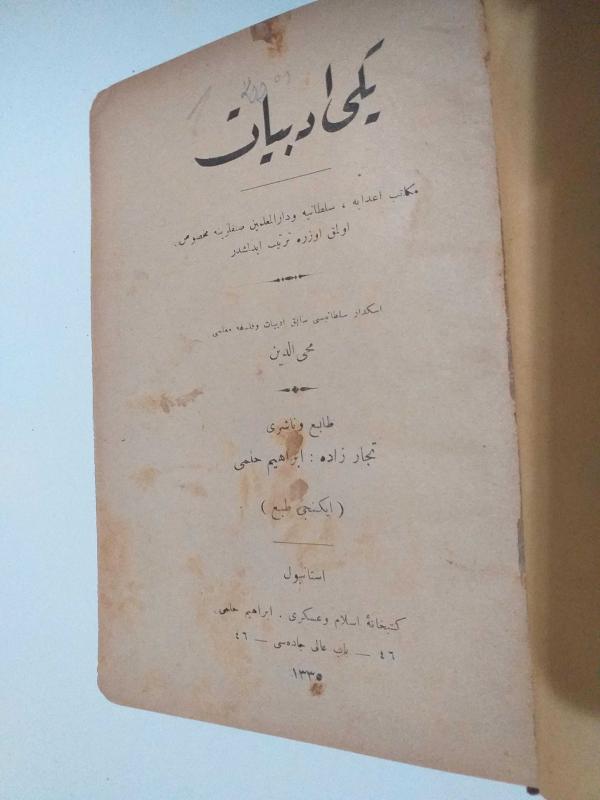 یكی ادبیات
مكاتب اعدادیه ، سلطانیه ودارالمعلمین صنفلرینه مخصوص
اولمق اوزره ترتیب ایدلمشدر
اسكدار سلطانیسی سابق ادبیات وفلسفه معلمی
محی الدین
طابع وناشری
تجار زاده : ابراهیم حلمی
( ایكنجی طبع )
استانبول
كتبخانهٔ اسلام وعسكری . ابراهیم حلمی
٤٦ — باب عالی جاده‌سی — ٤٦
١٣٣٥